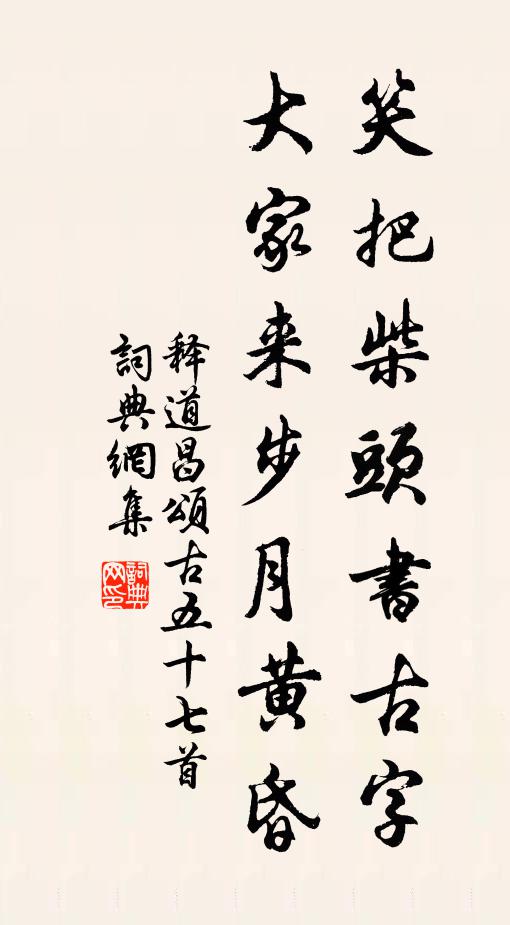 笑把柴頭書古字
大家来步月黄昏
释道昌頌古五十七首
詞典網集
詞典
网印